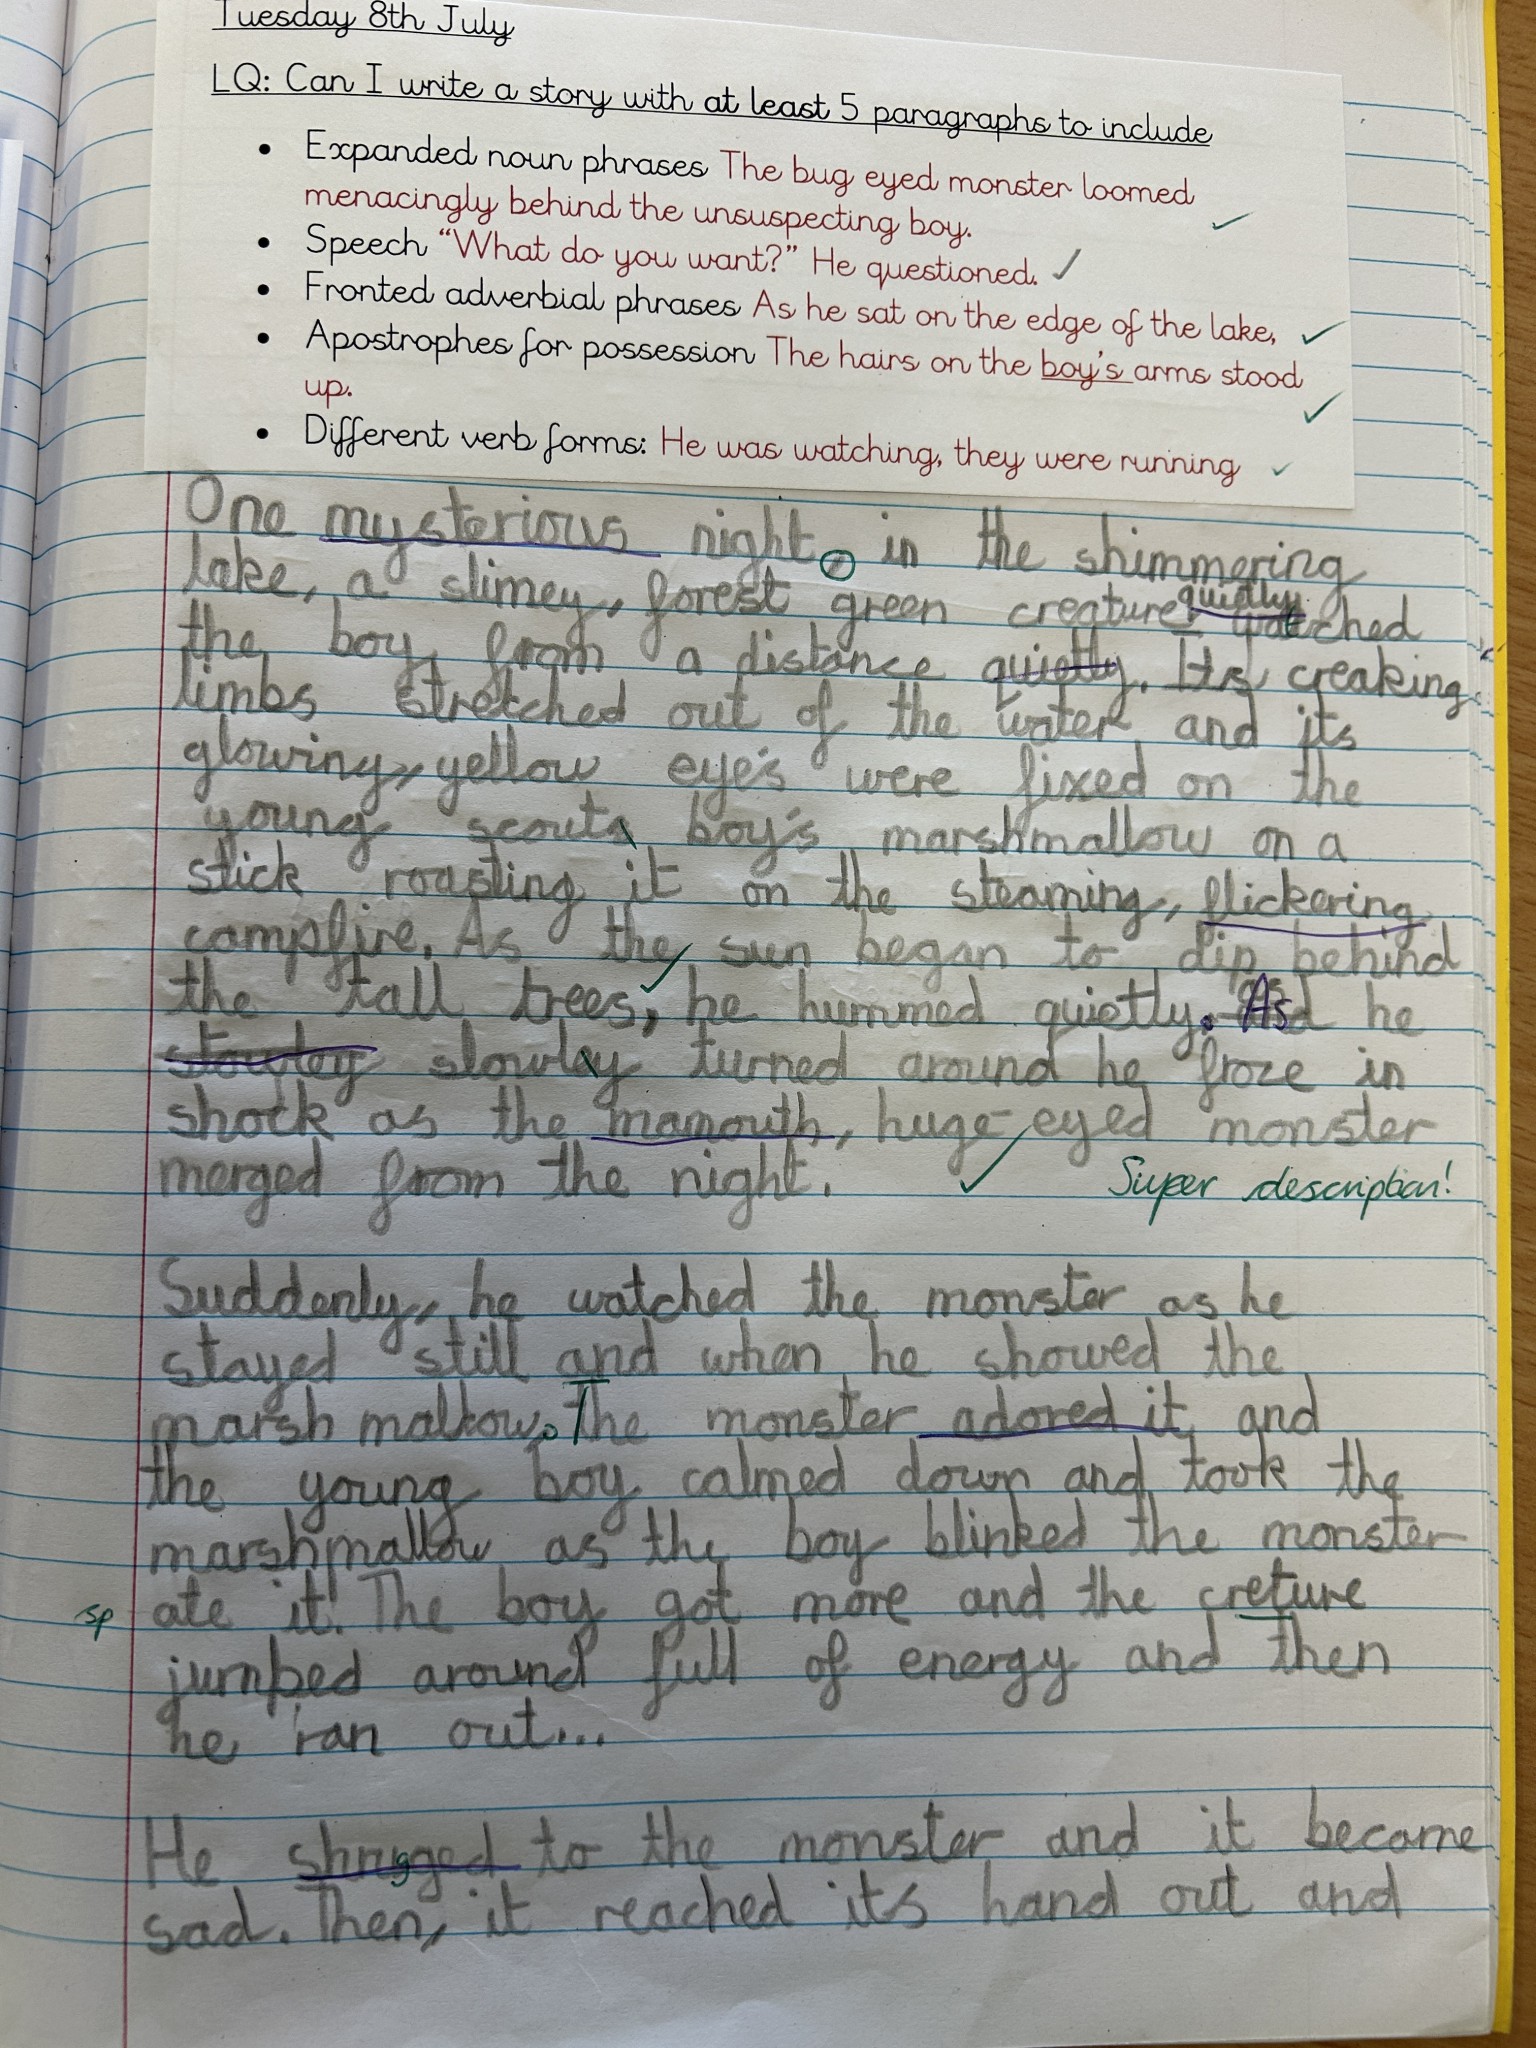 Tuesday 8th July
LQ: Can I write a story with at least 5 paragraphs to include
• Expanded noun phrases The bug eyed monster loomed
menacingly behind the unsuspecting boy.
• Speech “What do you want?” He questioned.
• Fronted adverbial phrases As he sat on the edge of the lake,
• Apostrophes for possession The hairs on the boy's arms stood
up.
• Different verb forms: He was watching, they were running
One mysterious night, in the shimmering
lake, a slimey, forest green creature quietly watched
the boy from a distance quietly. Its creaking
limbs stretched out of the water and its
glowing, yellow eye's were fixed on the
young scouts boy's marshmallow on a
stick roasting it on the steaming, flickering
campfire. As the sun began to dip behind
the tall trees, he hummed quietly. As he
slowley slowley turned around he froze in
shock as the mamouth, huge-eyed monster
merged from the night.
Super description!
Suddenly, he watched the monster as he
stayed still and when he showed the
marsh mallow. The monster adored it and
the young boy calmed down and took the
marshmallow as the boy blinked the monster
sp ate it! The boy got more and the creture
jumped around full of energy and then
he ran out...
He shrugged to the monster and it became
sad. Then, it reached its hand out and